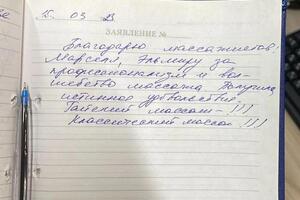 25 03 23
ЗАЯВЛЕНИЕ №
Благодарю массажистов:
Марселя, Эльмиру за
профессионализм и вол-
шебство массажа Получила
истинное удовольствие.
Тайский массаж – !!!
Классический массаж !!!